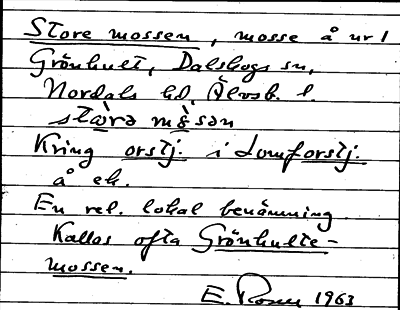 Store mossen, mosse å nr 1
Grönhult, Dalskogs sn,
Nordals hd, Älvsb. l.
stæ̀rə mɷ̀sən
Kring orstj. i Lomforstj.
å ek.
En rel. lokal benämning.
Kallas ofta Grönhulte-
mossen.
E. Rosen 1963